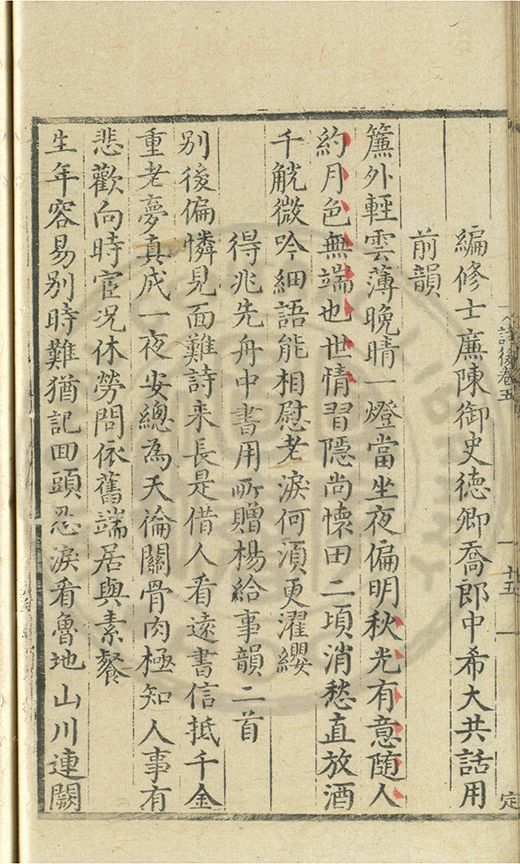 編修士廉陳御史德卿喬郎中希大共話用
前韻
簾外輕雲薄晚晴一燈當坐夜偏明秋光有意随人
約月色無端也世情習隠尚懷田二頃消愁直放酒
千觥微吟細語能相慰老淚何湏更濯纓
得兆先舟中書用所贈楊給事韻二首
别後偏憐見面難詩来長是借人看遠書信抵千金
重老夢真成一夜安總為天倫關骨肉極知人事有
悲歡向時宦况休勞問依舊端居與素餐
生年容易别時難猶記回頭忍淚看魯地山川連闕
詩後卷五
十五
定